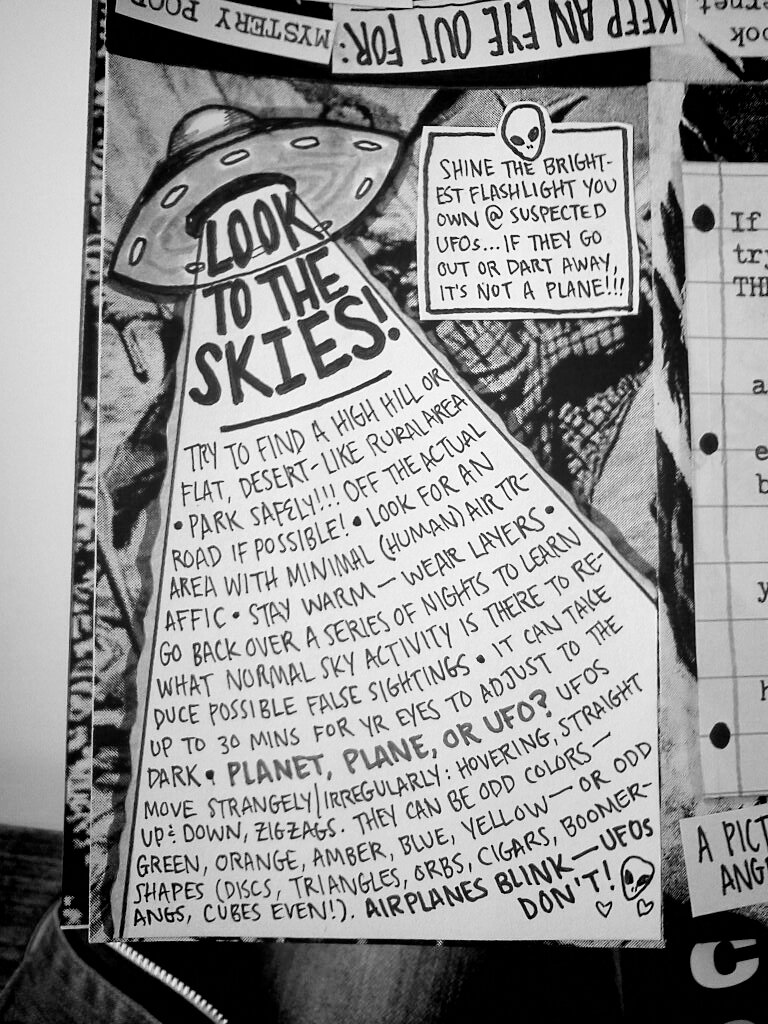 MYSTERY
KEEP AN EYE OUT FOR:
LOOK
TO THE
SKIES!
SHINE THE BRIGHT-
EST FLASHLIGHT YOU
OWN @ SUSPECTED
UFOs... IF THEY GO
OUT OR DART AWAY,
IT'S NOT A PLANE!!!
TRY TO FIND A HIGH HILL OR
FLAT, DESERT-LIKE RURAL AREA
• PARK SAFELY!!! OFF THE ACTUAL
ROAD IF POSSIBLE! • LOOK FOR AN
AREA WITH MINIMAL (HUMAN) AIR TR-
AFFIC • STAY WARM — WEAR LAYERS •
GO BACK OVER A SERIES OF NIGHTS TO LEARN
WHAT NORMAL SKY ACTIVITY IS THERE TO RE-
DUCE POSSIBLE FALSE SIGHTINGS • IT CAN TAKE
UP TO 30 MINS FOR YR EYES TO ADJUST TO THE
DARK • PLANET, PLANE, OR UFO? UFOS
MOVE STRANGELY/IRREGULARLY: HOVERING, STRAIGHT
UP & DOWN, ZIGZAGS. THEY CAN BE ODD COLORS —
GREEN, ORANGE, AMBER, BLUE, YELLOW — OR ODD
SHAPES (DISCS, TRIANGLES, ORBS, CIGARS, BOOMER-
ANGS, CUBES EVEN!). AIRPLANES BLINK — UFOS
DON'T!
If
A PICT
ANG